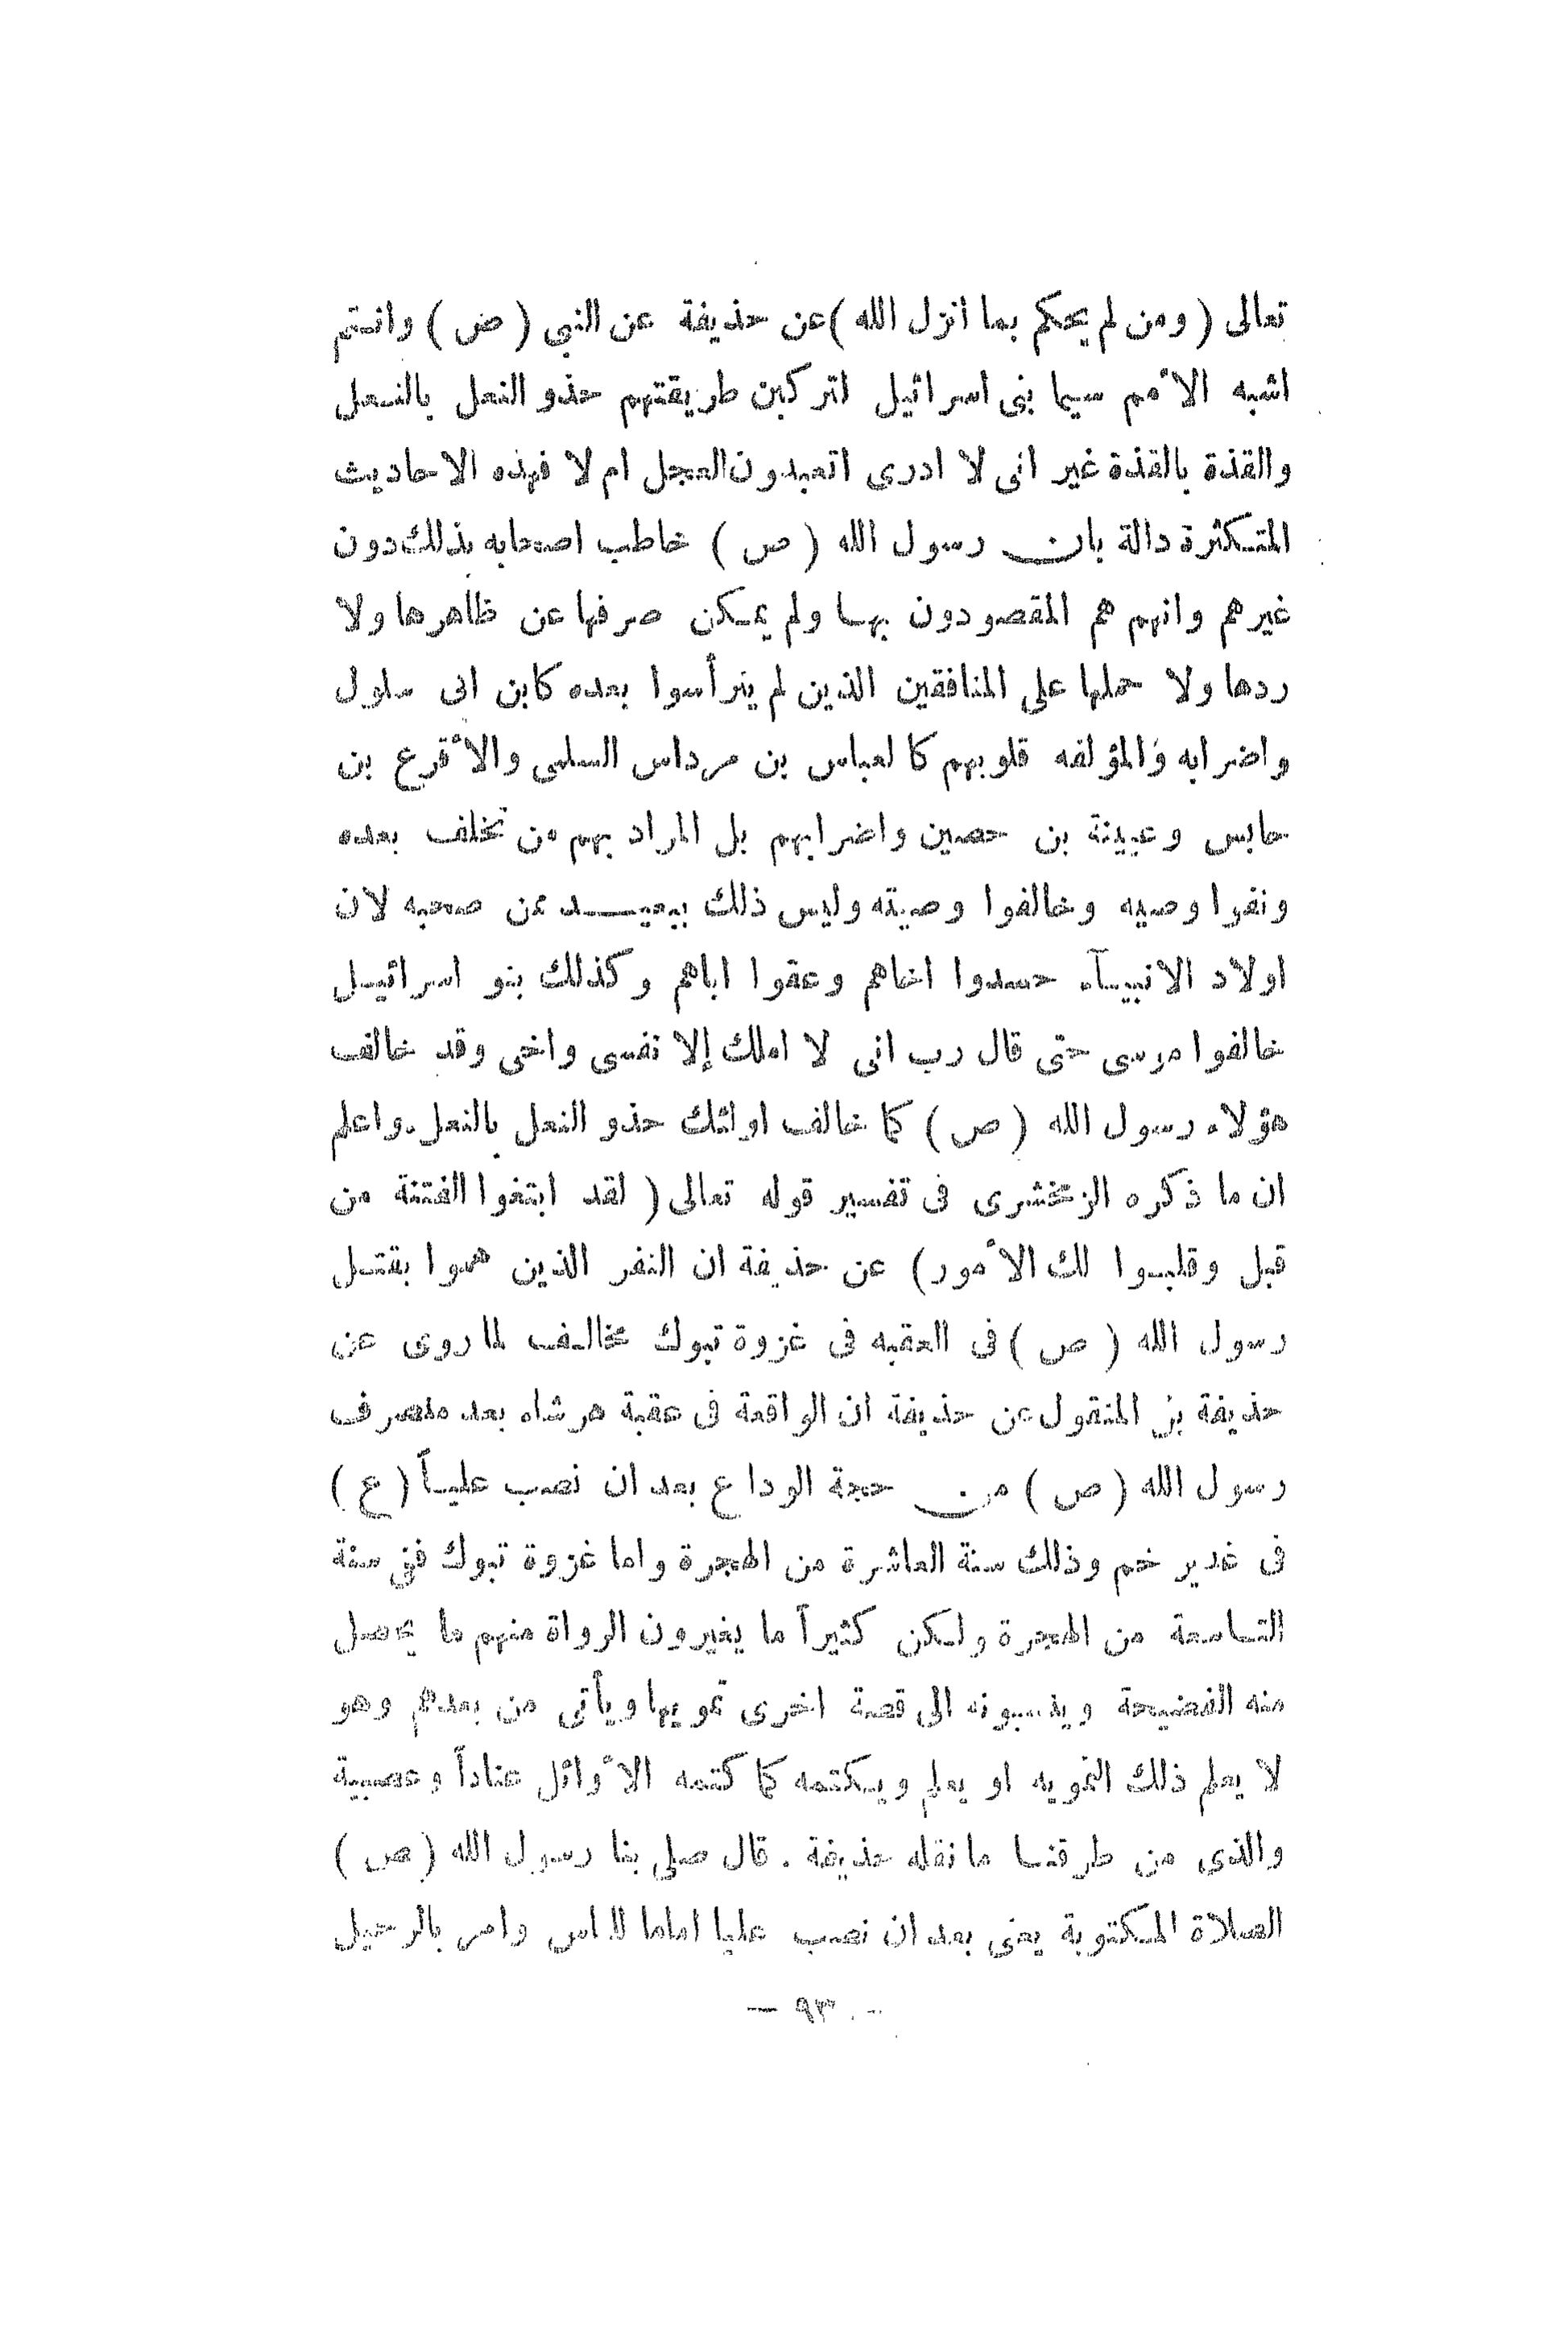 تعالى ( ومن لم يحكم بما أنزل الله ) عن حذيفة عن النبي ( ص ) وانتم
اشبه الأمم سيما بنى اسرائيل لتركبن طريقتهم حذو النعل بالنعل
والقذة بالقذة غير انى لا ادرى اتعبدون العجل ام لا فهذه الاحاديث
المتكثرة دالة بان رسول الله ( ص ) خاطب اصحابه بذلك دون
غيرهم وانهم هم المقصودون بها ولم يمكن صرفها عن ظاهرها ولا
ردها ولا حملها على المنافقين الذين لم يترأسوا بعده كابن ابى سلول
واضرابه والمؤلفه قلوبهم كالعباس بن مرداس السلمى والأقرع بن
حابس وعيينة بن حصين واضرابهم بل المراد بهم من تخلف بعده
ونفرا وصيه وخالفوا وصيته وليس ذلك ببعيد عمن صحبه لان
اولاد الانبيآء حسدوا اخاهم وعقوا اباهم وكذلك بنو اسرائيل
خالفوا موسى حتى قال رب انى لا املك إلا نفسى واخى وقد خالف
هؤلاء رسول الله ( ص ) كما خالف اولئك حذو النعل بالنعل . واعلم
ان ما ذكره الزمخشرى فى تفسير قوله تعالى ( لقد ابتغوا الفتنة من
قبل وقلبوا لك الأمور ) عن حذيفة ان النفر الذين هموا بقتل
رسول الله ( ص ) فى العقبه فى غزوة تبوك مخالف لما روى عن
حذيفة بل المنقول عن حذيفة ان الواقعة فى عقبة هرشاه بعد منصرف
رسول الله ( ص ) من حجة الوداع بعد ان نصب علياً ( ع )
فى غدير خم وذلك سنة العاشرة من الهجرة واما غزوة تبوك ففي سنة
التاسعة من الهجرة ولكن كثيراً ما يغيرون الرواة منهم ما يحصل
منه الفضيحة وينسبونه الى قصة اخرى تمويها ويأتى من بعدهم وهو
لا يعلم ذلك التمويه او يعلم ويكتمه كما كتمه الأوائل عناداً وعصبية
والذى من طرقنا ما نقله حذيفة . قال صلى بنا رسول الله ( ص )
الصلاة المكتوبة يعنى بعد ان نصب عليا اماما للناس وامر بالرحيل
— ٩٣ —